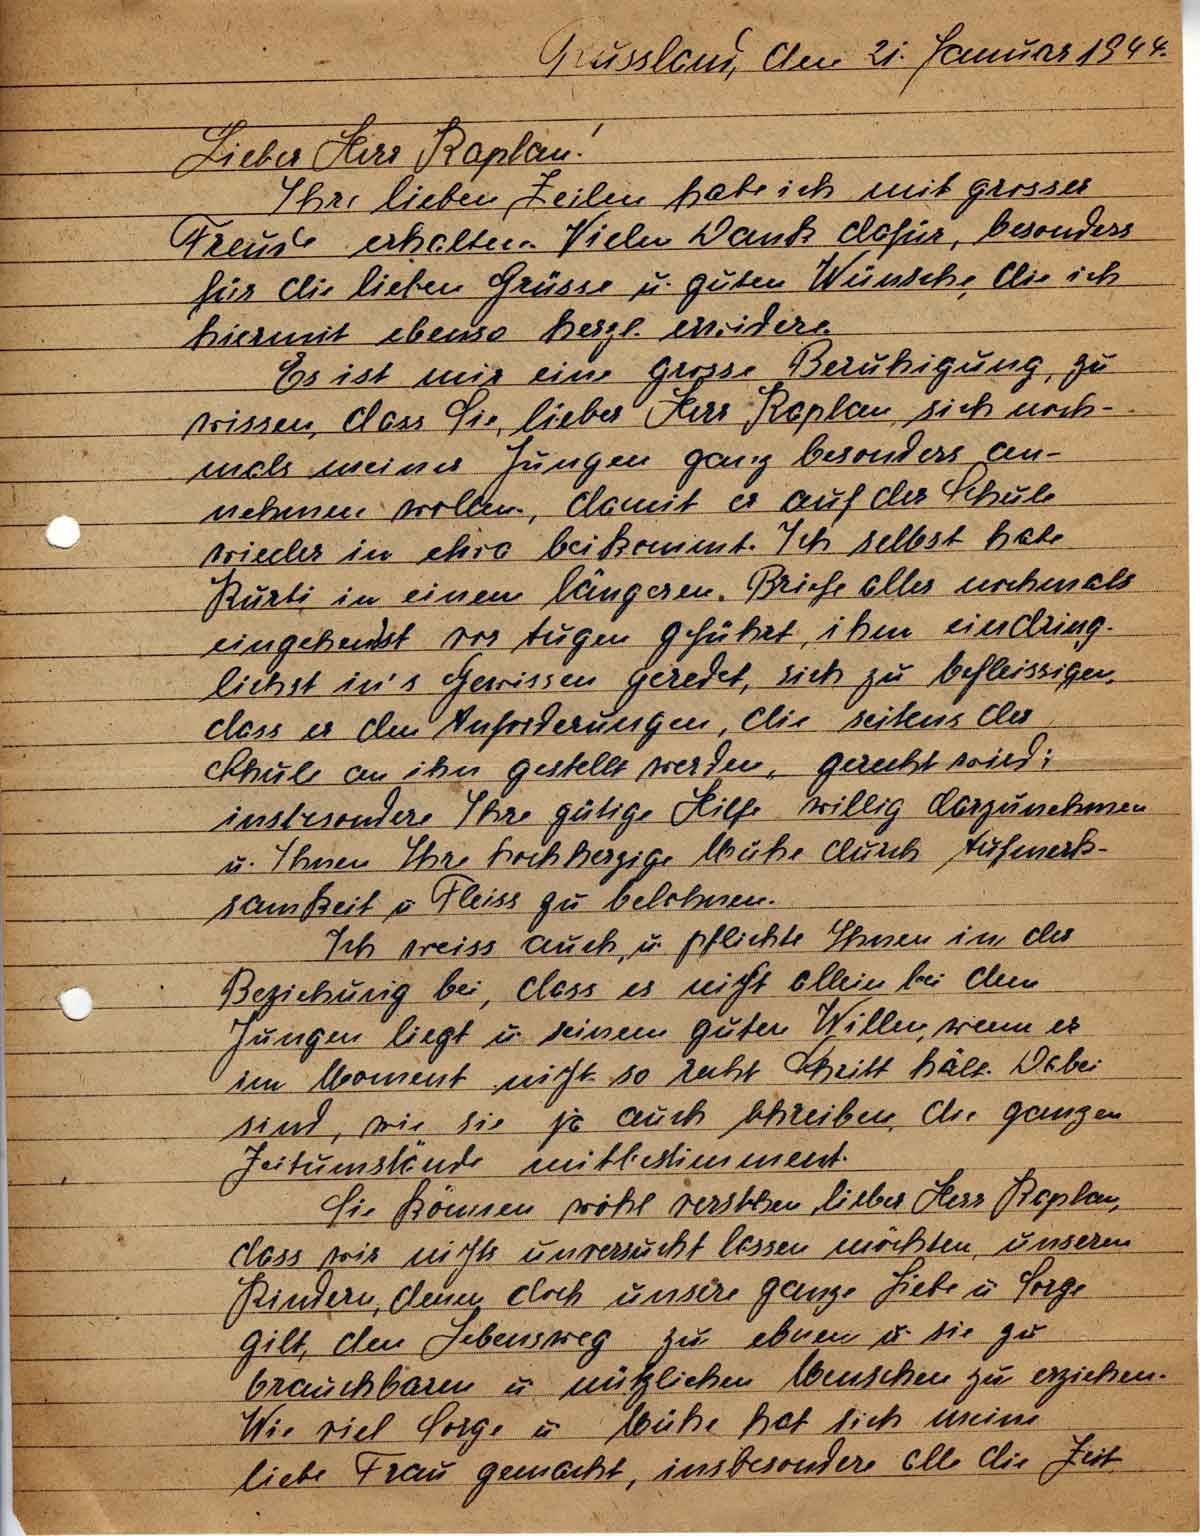 Russland, den 21. Januar 1944.
Lieber Herr Kaplan!
Ihre lieben Zeilen habe ich mit grosser
Freude erhalten. Vielen Dank dafür, besonders
für die lieben Grüsse u. guten Wünsche, die ich
hiermit ebenso herzl. erwidere.
Es ist mir eine grosse Beruhigung, zu
wissen, dass Sie, lieber Herr Kaplan, sich noch-
mals meines Jungen ganz besonders an-
nehmen wollen, damit er auf der Schule
wieder in etwa beikommt. Ich selbst habe
Kurti in einem längeren Briefe alles nochmals
eingehendst vor Augen geführt, ihm eindring-
lichst in's Gewissen geredet, sich zu befleissigen,
dass er den Anforderungen, die seitens der
Schule an ihn gestellt werden, gerecht wird;
insbesondere Ihre gütige Hilfe willig
u. Ihnen Ihre hochherzige Mühe durch Aufmerk-
samkeit u Fleiss zu belohnen.
Ich weiss auch, u. pflichte Ihnen in der
Beziehung bei, dass es nicht allein bei dem
Jungen liegt u. seinem guten Willen, wenn er
im Moment nicht so recht Schritt hält. Dabei
sind, wie sie ja auch schreiben, die ganzen
Zeitumstände mitbestimmend.
Sie können wohl verstehen, lieber Herr Kaplan,
dass wir nichts unversucht lassen möchten, unseren
Kindern, denen doch unsere ganze Liebe u Sorge
gilt, den Lebensweg zu ebnen u. sie zu
brauchbaren u nützlichen Menschen zu erziehen.
Wie viel Sorge u Mühe hat sich meine
liebe Frau gemacht, insbesondere alle die Zeit